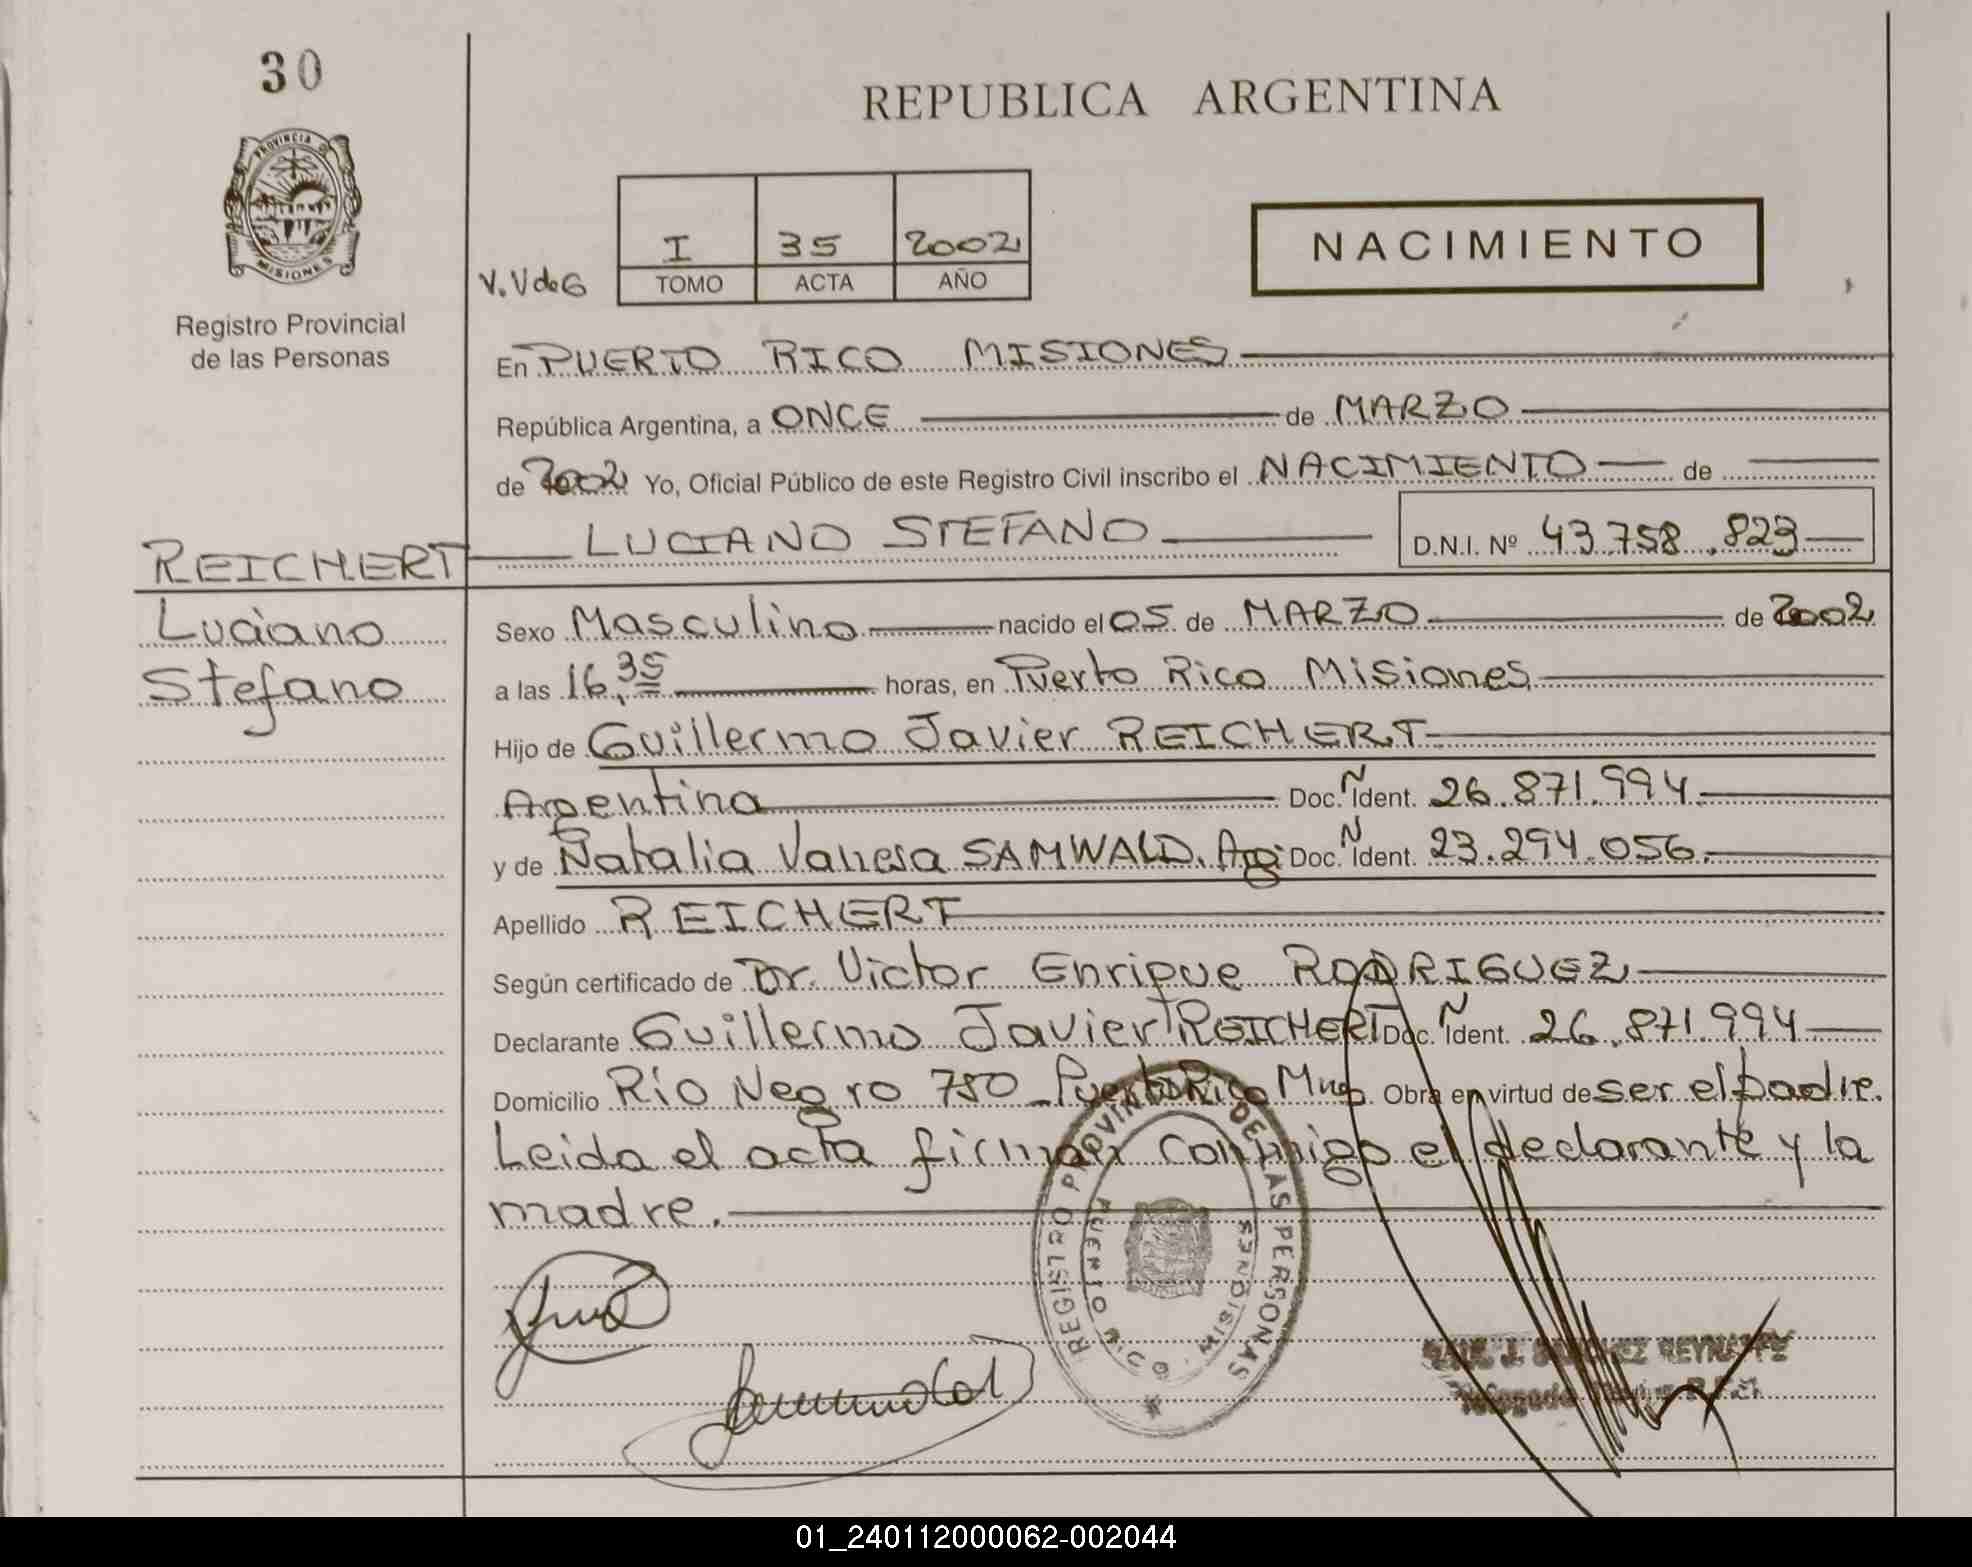 30
REPUBLICA ARGENTINA
PROVINCIA DE
MISIONES
Registro Provincial
de las Personas
V.V de G
I 35 2002
TOMO ACTA AÑO
NACIMIENTO
En PUERTO RICO MISIONES
República Argentina, a ONCE de MARZO
de 2002 Yo, Oficial Público de este Registro Civil inscribo el NACIMIENTO de
REICHERT LUCIANO STEFANO D.N.I. Nº 43.758.823
Luciano
Stefano
Sexo Masculino nacido el 05 de MARZO de 2002
a las 16,35 horas, en Puerto Rico Misiones
Hijo de Guillermo Javier REICHERT
Argentina Doc. Ñ Ident. 26.871.994
y de Natalia Vanesa SAMWALD. Arg. Doc. Ñ Ident. 23.294.056.
Apellido REICHERT
Según certificado de Dr. Victor Enrique RODRIGUEZ
Declarante Guillermo Javier REICHERT Doc. Ñ Ident. 26.871.994
Domicilio Río Negro 750 Puerto Rico Mnes Obra en virtud de ser el padre.
Leida el acta firman conmigo el declarante y la
madre.
REGISTRO PROVINCIAL DE LAS PERSONAS
PUERTO RICO - MISIONES
01_240112000062-002044